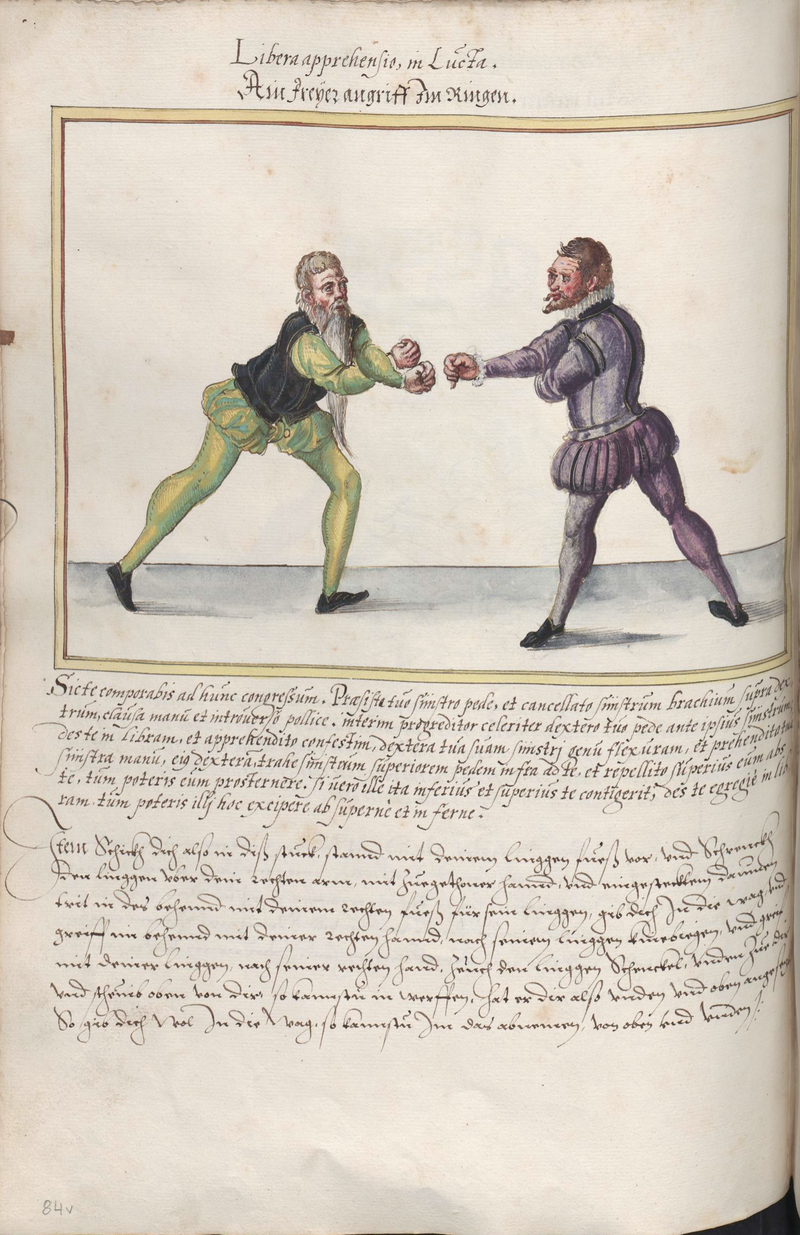 Libera apprehensio, in Lucta.
Ain Freÿer angriff Im Ringen.
Sic te comporabis ad hunc congressum. Præsistito tuo sinistro pede, et cancellato sinistrum brachium supra dex,
trum, clausa manu et introverso pollice. interim progreditor celeriter dextero tuo pede ante ipsius sinistrum,
des te in libram, et apprehendito confestim, dextera tua suam sinistrj genu flexuram, et prehendito tua
sinistra manu, eiq dexterã, trahe sinistrum superiorem pedem infra ad te, et repellito superius eum abs
te, tum poteris eum prosternere. si uero ille ita inferius et superius te contigerit, des te egregiè in lib
ram, tum poteris illj hoc excipere ab supernè et inferne.
Item Schickh dich also in diß stuckh, stannd mit deinem linggen fueß vor, vnd Schrenckh
den linggen vber dein rechten arm, mit Zuegethoner hannd, vnd eingestecktem daumen
trit in des behennd mit deinem rechten fueß für sein linggen, gib dich In die wag, vnd
greiff im behennd mit deiner rechten hannd, nach seinem linggen kniebiegen, vnd greiff
mit deiner linggen, nach seiner rechten hand, Zeuch den linggen Schenckel, vnden Zue dir
vnd scheub oben von dir, so kannstu in werffen, hat er dir also vnden vnd oben angesetzt
So gib dich wol In die wag, so kannstu Im das abnemen, von oben vnd vnden.
84v